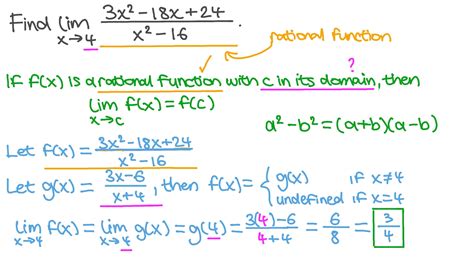 Find lim x→4 (3x²-18x+24)/(x²-16).
rational function
?
If f(x) is a rational function ✓ with c in its domain, then
lim x→c f(x) = f(c)
a²-b²=(a+b)(a-b)
Let f(x) = (3x²-18x+24)/(x²-16)
Let g(x) = (3x-6)/(x+4), then f(x) = { g(x) if x≠4
undefined if x=4
lim x→4 f(x) = lim x→4 g(x) = g(4) = (3(4)-6)/(4+4) = 6/8 = 3/4